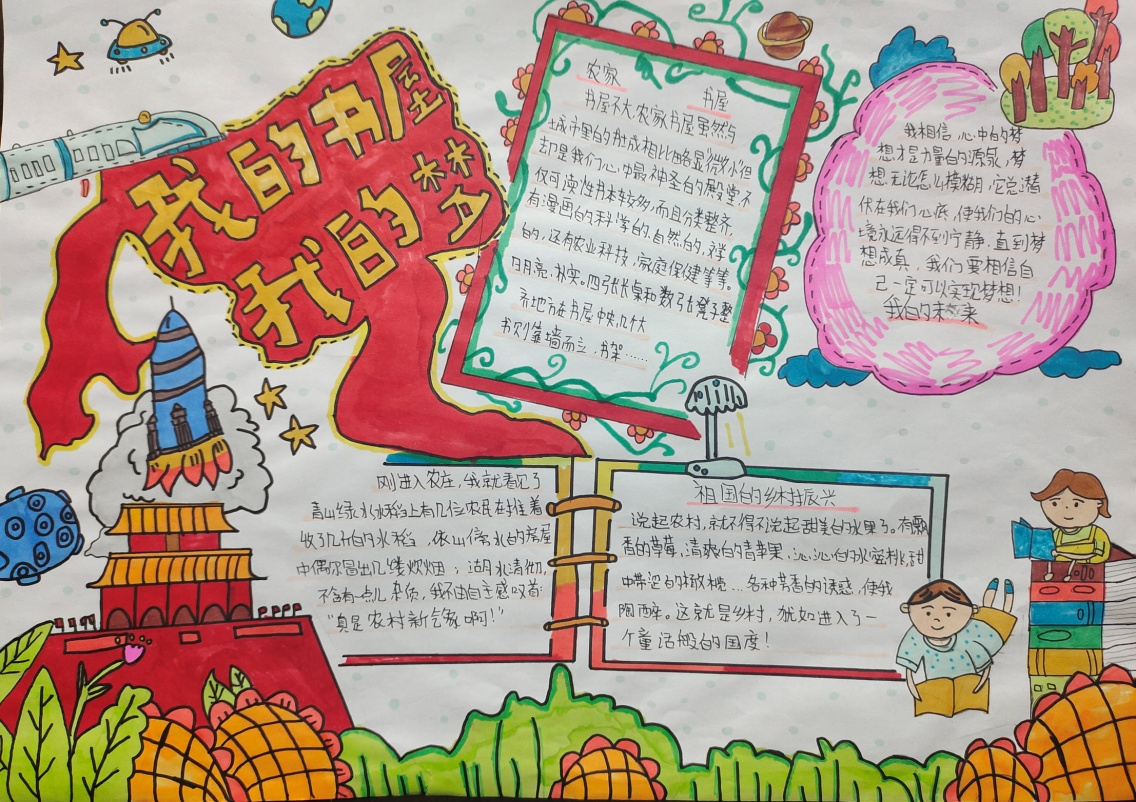 我的书屋
我的梦
农家 书屋
书屋不大,农家书屋虽然与
城市里的相比略显"微小但
却是我们心中最神圣的殿堂不
仅可读性书本较多,而且分类整齐,
有漫画的科学的,自然的,文学
的,还有农业科技,家庭保健等等。
明亮、朴实。四张长桌和数张凳子整
齐地方在书屋中央,几个大
书则靠墙而立,书架……
我相信,心中的梦
想才是力量的源泉,梦
想无论怎么模糊,它总潜
伏在我们心底,使我们的心
境永远得不到宁静,直到梦
想成真,我们要相信自
己一定可以实现梦想!
我的未来
刚进入农庄,我就看见了
青山绿水,水稻上有几位农民在推着
收了几斤的水稻,依山傍水的房屋
中偶尔冒出几缕炊烟;湖水清彻,
不含有一点儿杂质,我不由自主感叹着
"真是农村新气象啊!"
祖国的乡村振兴
说起农村,就不得不说起甜美的水果了。有飘
香的草莓,清爽的青苹果,沁沁的水蜜桃,甜
中带涩的橄榄…各种芳香的诱惑,使我
陶醉。这就是乡村,犹如进入了一
个童话般的国度!